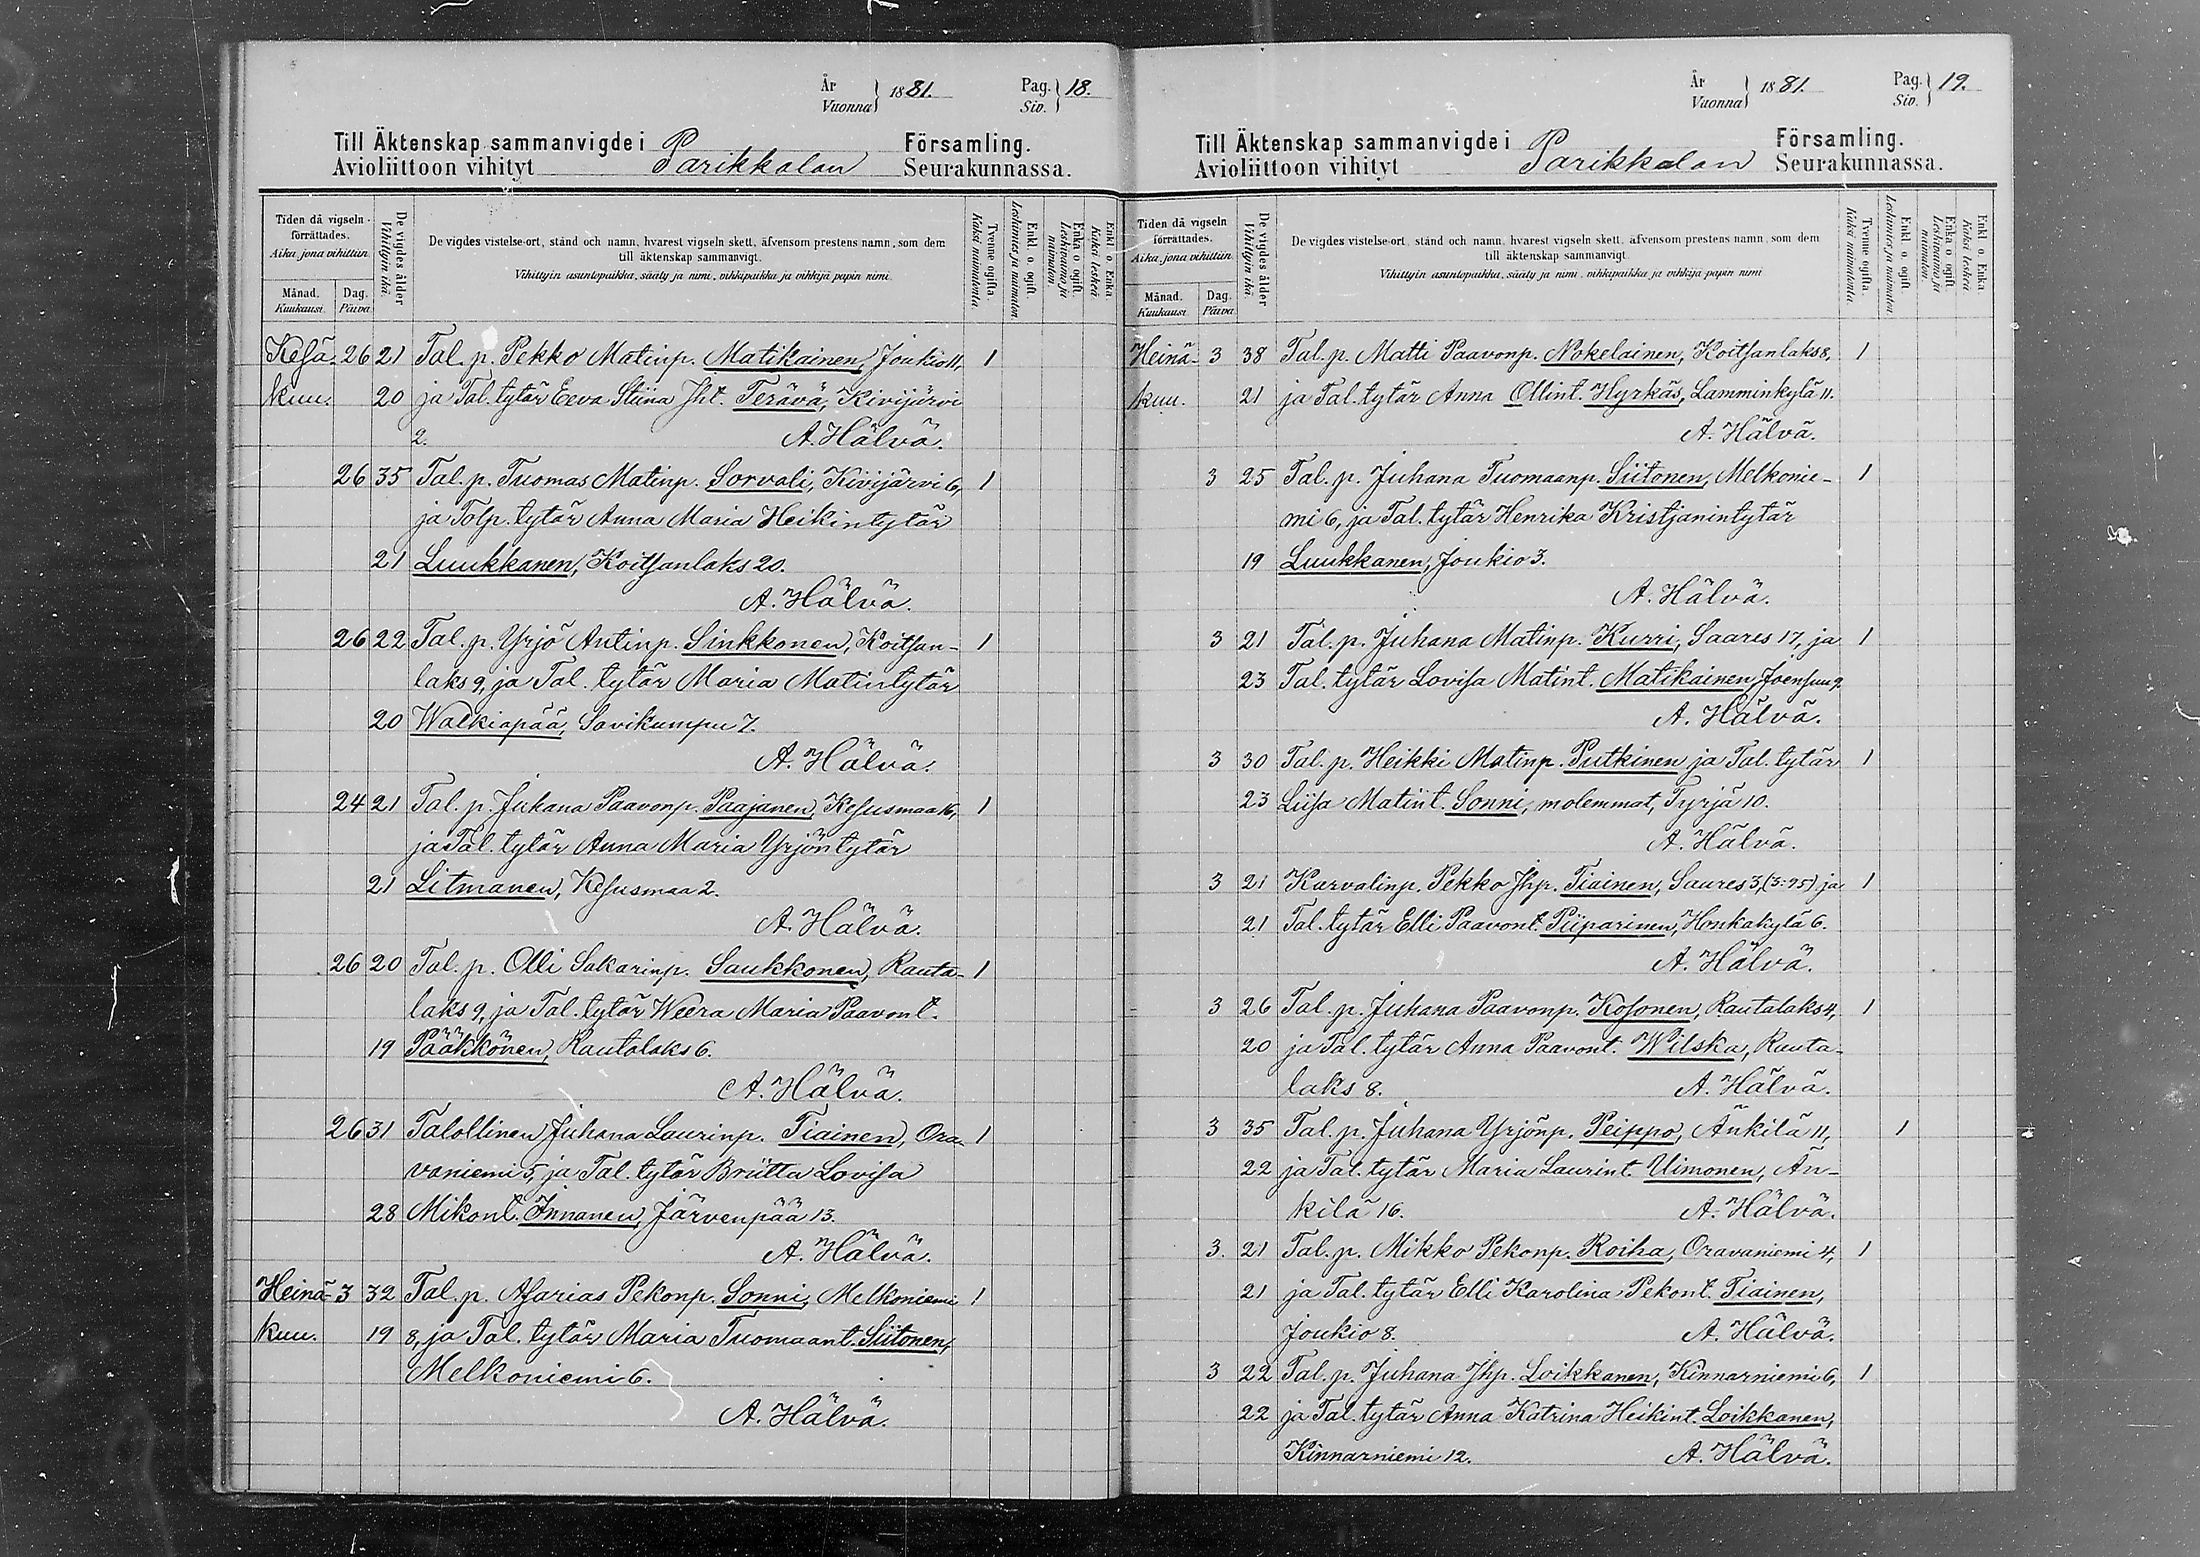 År Vuonna } 1881. Pag. Siv. } 18.
Till Äktenskap sammanvigde i Församling.
Avioliittoon vihityt Parikkalan Seurakunnassa.
Tiden då vigseln förrättades.
Aika, jona vihittiin
Månad. Kuukausi
Dag. Päivä
De vigdes ålder
Vihittyin ikä.
De vigdes vistelse-ort, stånd och namn, hvarest vigseln skett, äfvensom prestens namn, som dem
till äktenskap sammanvigt.
Vihittyin asuntopaikka, sääty ja nimi, vihkipaikka ja vihkijä papin nimi.
Tvenne ogifta.
Kaksi naimatonta
Enkl. o. ogift.
Leskimies ja naimaton
Enka o. ogift.
Leskivaimo ja naimaton
Enkl. o. Enka
Kaksi leskeä
Kesä- 26 21 Tal. p. Pekko Matinp. Matikainen, Joukio 11, 1
kuu. 20 ja Tal. tytär Eeva Stiina Jht. Terävä, Kivijärvi
2. A. Hälvä.
26 35 Tal. p. Tuomas Matinp. Sorvali, Kivijärvi 6, 1
ja Tolp. tytär Anna Maria Heikintytär
21 Luukkanen, Koitsanlaks 20.
A. Hälvä.
26 22 Tal. p. Yrjö Antinp. Sinkkonen, Koitsan- 1
laks 9, ja Tal. tytär Maria Matintytär
20 Walkiapää, Savikumpu 7.
A. Hälvä.
24 21 Tal. p. Juhana Paavonp. Paajanen, Kesusmaa 16, 1
ja Tal. tytär Anna Maria Yrjöntytär
21 Litmanen, Kesusmaa 2.
A. Hälvä.
26 20 Tal. p. Olli Sakarinp. Saukkonen, Rauta- 1
laks 9, ja Tal. tytär Weera Maria Paavont.
19 Pääkkönen, Rautalaks 6.
A. Hälvä.
26 31 Talollinen Juhana Laurinp. Tiainen, Ora- 1
vaniemi 5, ja Tal. tytär Briitta Lovisa
28 Mikont. Innanen, Järvenpää 13.
A. Hälvä.
Heinä- 3 32 Tal. p. Asarias Pekonp. Sonni, Melkoniemi 1
kuu. 19 8, ja Tal. tytär Maria Tuomaant. Siitonen,
Melkoniemi 6.
A. Hälvä.
År Vuonna } 1881. Pag. Siv. } 19.
Till Äktenskap sammanvigde i Församling.
Avioliittoon vihityt Parikkalan Seurakunnassa.
Tiden då vigseln förrättades.
Aika, jona vihittiin
Månad. Kuukausi
Dag. Päivä
De vigdes ålder
Vihittyin ikä.
De vigdes vistelse-ort, stånd och namn, hvarest vigseln skett, äfvensom prestens namn, som dem
till äktenskap sammanvigt.
Vihittyin asuntopaikka, sääty ja nimi, vihkipaikka ja vihkijä papin nimi
Tvenne ogifta.
Kaksi naimatonta
Enkl. o. ogift.
Leskimies ja naimaton
Enka o. ogift.
Leskivaimo ja naimaton.
Enkl. o. Enka
Kaksi leskeä
Heinä- 3 38 Tal. p. Matti Paavonp. Nokelainen, Koitsanlaks 8, 1
kuu. 21 ja Tal. tytär Anna Ollint. Hyrkäs, Lamminkylä 11.
A. Hälvä.
3 25 Tal. p. Juhana Tuomaanp. Siitonen, Melkonie- 1
mi 6, ja Tal. tytär Henrika Kristjanintytär
19 Luukkanen, Joukio 3.
A. Hälvä.
3 21 Tal. p. Juhana Matinp. Kurri, Saares 17, ja 1
23 Tal. tytär Lovisa Matint. Matikainen, Joensuu 9.
A. Hälvä.
3 30 Tal. p. Heikki Matinp. Putkinen ja Tal. tytär 1
23 Liisa Matint. Sonni, molemmat, Tyrjä 10.
A. Hälvä.
3 21 Karvalinp. Pekko Jhp. Tiainen, Saares 3, (3:95) ja 1
21 Tal. tytär Elli Paavont. Piiparinen, Honkakylä 6.
A. Hälvä.
3 26 Tal. p. Juhana Paavonp. Kosonen, Rautalaks 4, 1
20 ja Tal. tytär Anna Paavont. Wilska, Rauta-
laks 8. A. Hälvä.
3 35 Tal. p. Juhana Yrjönp. Peippo, Änkilä 11, 1
22 ja Tal. tytär Maria Laurint. Uimonen, Än-
kilä 16. A. Hälvä.
3. 21 Tal. p. Mikko Pekonp. Roiha, Oravaniemi 4, 1
21 ja Tal. tytär Elli Karolina Pekont. Tiainen,
Joukio 8. A. Hälvä.
3 22 Tal. p. Juhana Jhp. Loikkanen, Kinnarniemi 6, 1
22 ja Tal. tytär Anna Katrina Heikint. Loikkanen,
Kinnarniemi 12. A. Hälvä.